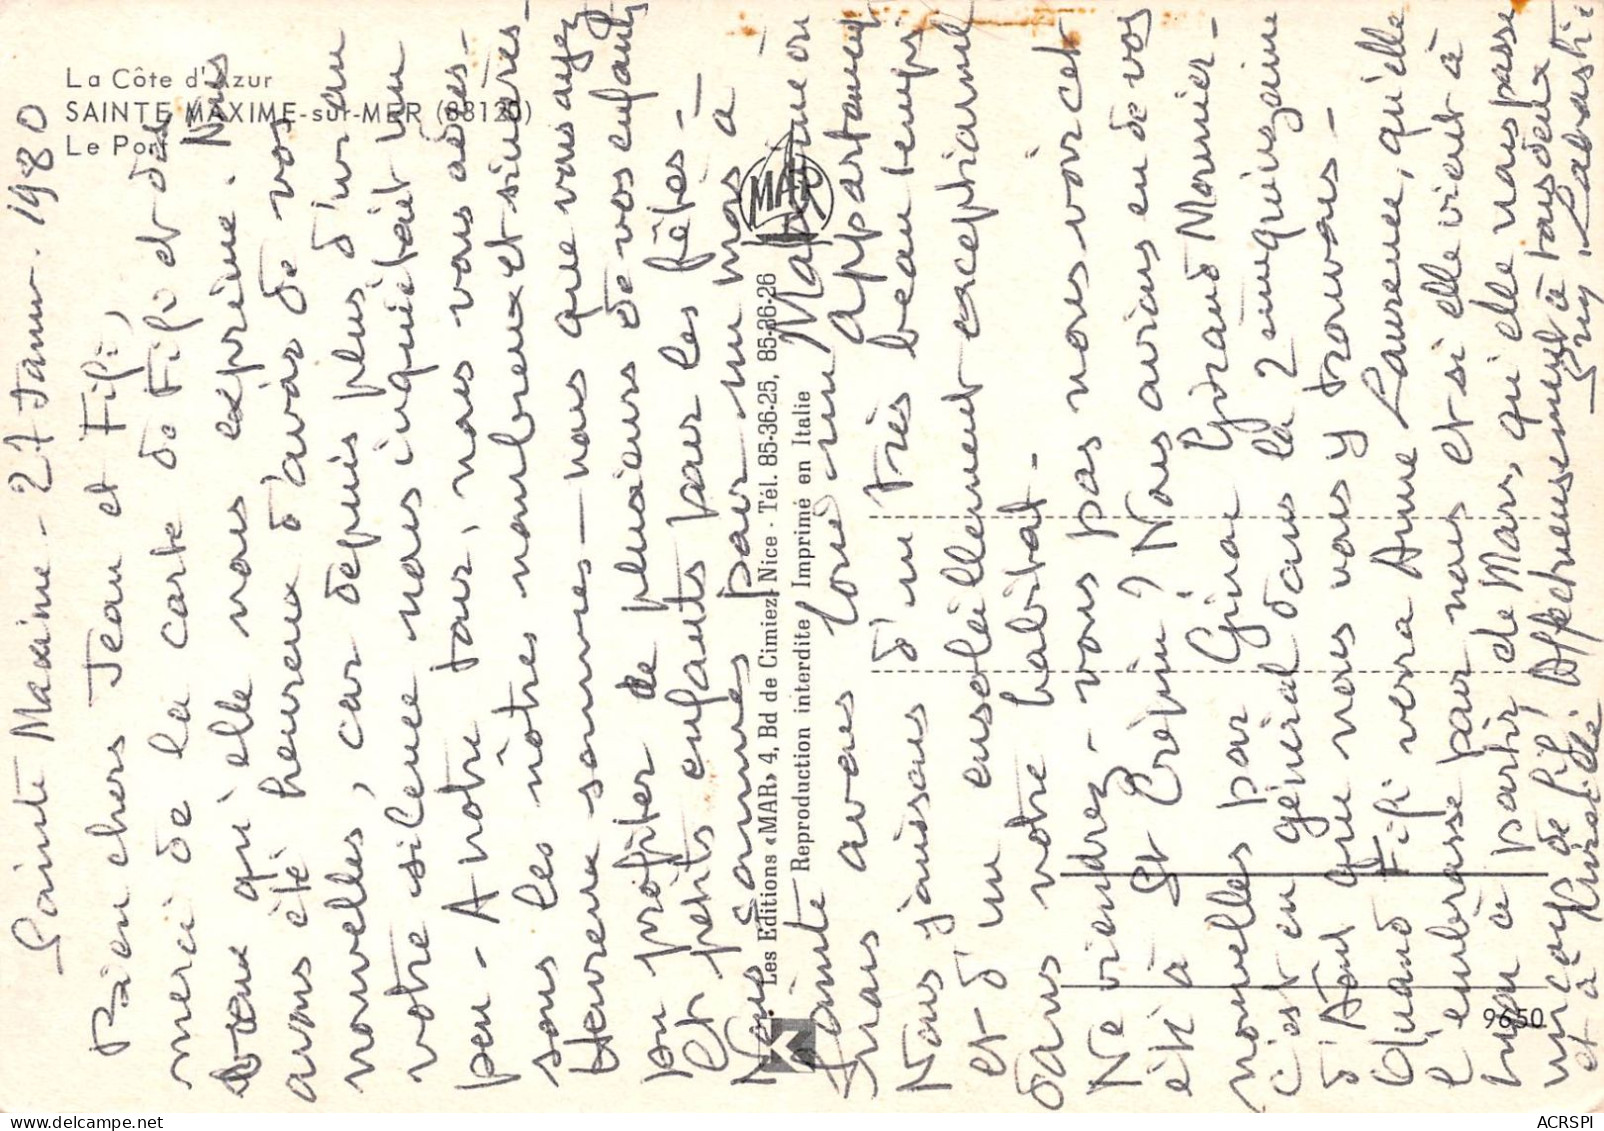 La Côte d'Azur
SAINTE MAXIME-sur-MER (83120)
Le Port
Sainte Maxime - 27 Janv. 1980
Bien chers Jean et Fifi,
merci de la carte de Fifi et des
vœux qu'elle nous exprime. Nous
avons été heureux d'avoir de vos
nouvelles, car depuis plus d'un an
votre silence nous inquiétait un
peu - A notre tour, nous vous adres-
sons les nôtres nombreux et sincères -
Heureux sommes-nous que vous ayez
pu profiter de plusieurs de vos enfants
et petits enfants pour les fêtes -
Nous sommes pour un mois à
Sainte Maxime où
nous avons loué un appartement
Nous jouissons d'un très beau temps
et d'un ensoleillement exceptionnel
dans notre habitat -
Ne viendrez-vous pas nous voir cet
été à St Crépin ? Nous aurions eu de vos
nouvelles par Ginou Giraud Mounier -
C'est en général dans la 2e quinzaine
d'Août que nous nous y trouvons -
Quand Fifi verra Anne Laurence, qu'elle
l'embrasse pour nous et si elle vient à
à partir de Mars, qu'elle nous passe
un coup de fil ! Affectueusement à tous deux
et à
Les Editions «MAR» 4, Bd de Cimiez - Nice - Tél. 85-36-25, 85-36-26
Reproduction interdite Imprimé en Italie
MAR
9650
ACRSPI